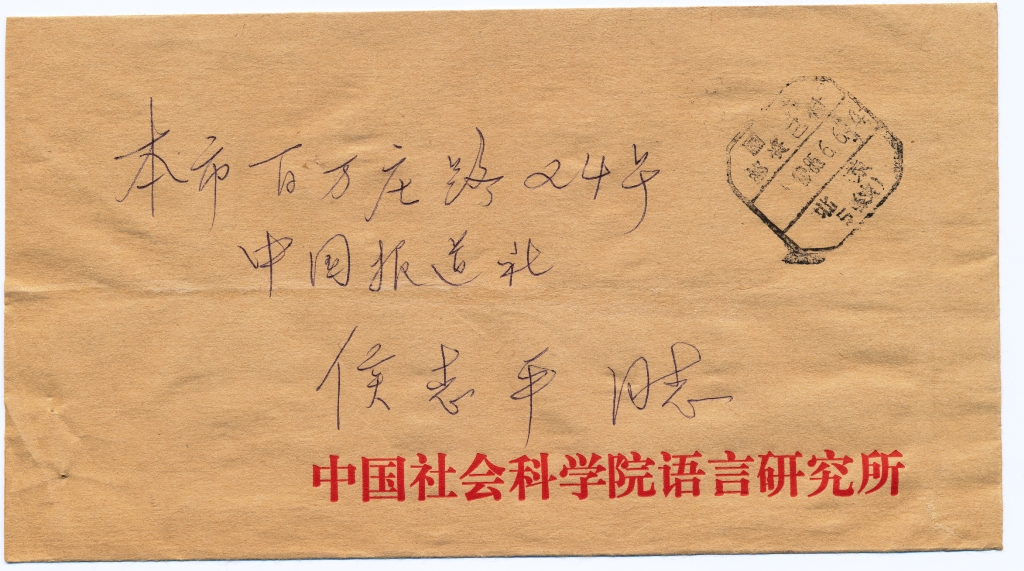 本市百万庄路24号
中国报道社
侯志平同志
中国社会科学院语言研究所
国
邮资已付
1986.6.6
北京